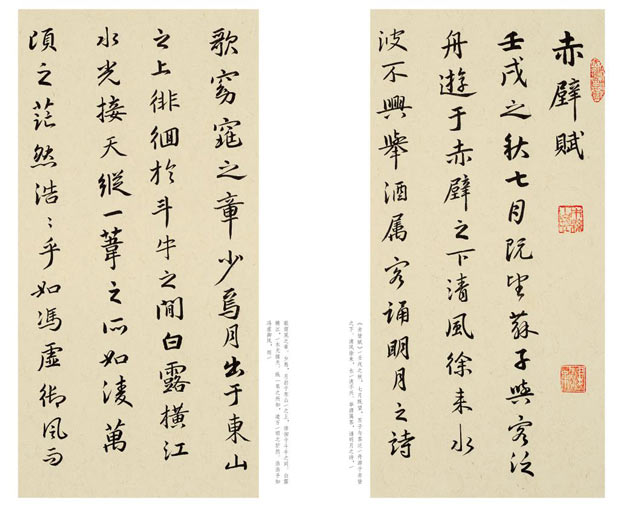 赤壁賦
壬戌之秋七月既望蘇子與客泛
舟遊于赤壁之下清風徐来水
波不興舉酒属客誦明月之詩
歌窈窕之章少焉月出于東山
之上徘徊於斗牛之間白露橫江
水光接天縱一葦之所如凌萬
頃之茫然浩〻乎如馮虛御風而